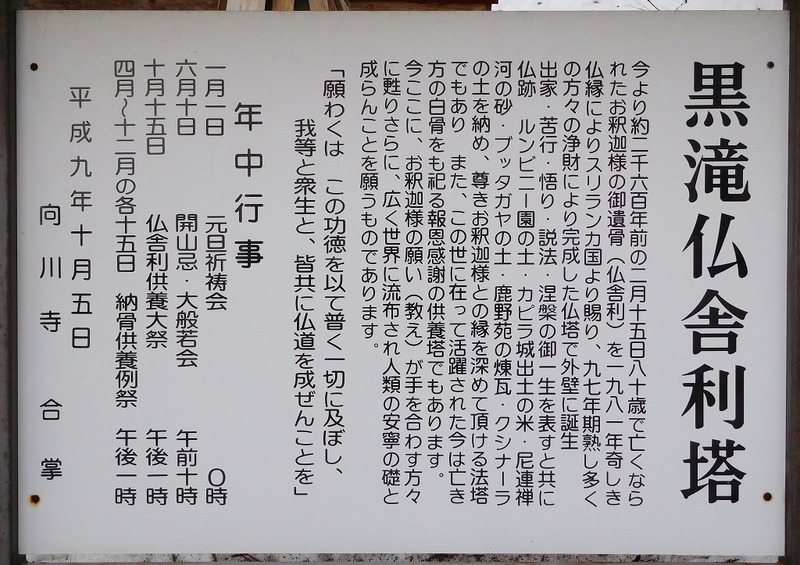 黒滝仏舎利塔
今より約二千六百年前の二月十五日八十歳で亡くなら
れたお釈迦様の御遺骨（仏舎利）を一九八一年奇しき
仏縁によりスリランカ国より賜り、九七年期熟し多く
の方々の浄財により完成した仏塔で外壁に誕生
出家・苦行・悟り・説法・涅槃の御一生を表すと共に
仏跡　ルンビニー園の土・カピラ城出土の米・尼連禅
河の砂・ブッタガヤの土・鹿野苑の煉瓦・クシナーラ
の土を納め、尊きお釈迦様との縁を深めて頂ける法塔
でもあり　また、この世に在って活躍された今は亡き
方の白骨をも祀る報恩感謝の供養塔でもあります。
今ここに、お釈迦様の願い（教え）が手を合わす方々
に甦りさらに、広く世界に流布され人類の安寧の礎と
成らんことを願うものであります。
「願わくは　この功徳を以て普く一切に及ぼし、
我等と衆生と、皆共に仏道を成ぜんことを」
年中行事
一月一日　元旦祈祷会　〇時
六月十日　開山忌・大般若会　午前十時
十月十五日　仏舎利供養大祭　午後一時
四月〜十二月の各十五日　納骨供養例祭　午後一時
平成九年十月五日
向川寺　合掌